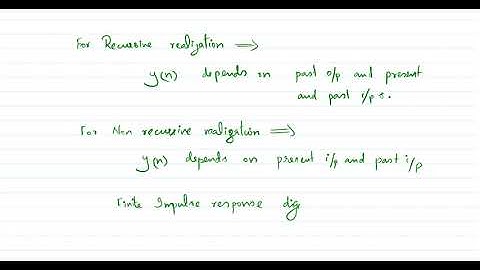 For Recursive realization ⟹
y(n) depends on past o/p and present
and past i/p s.
For Non recursive realization ⟹
y(n) depends on present i/p and past i/p
Finite Impulse response dig